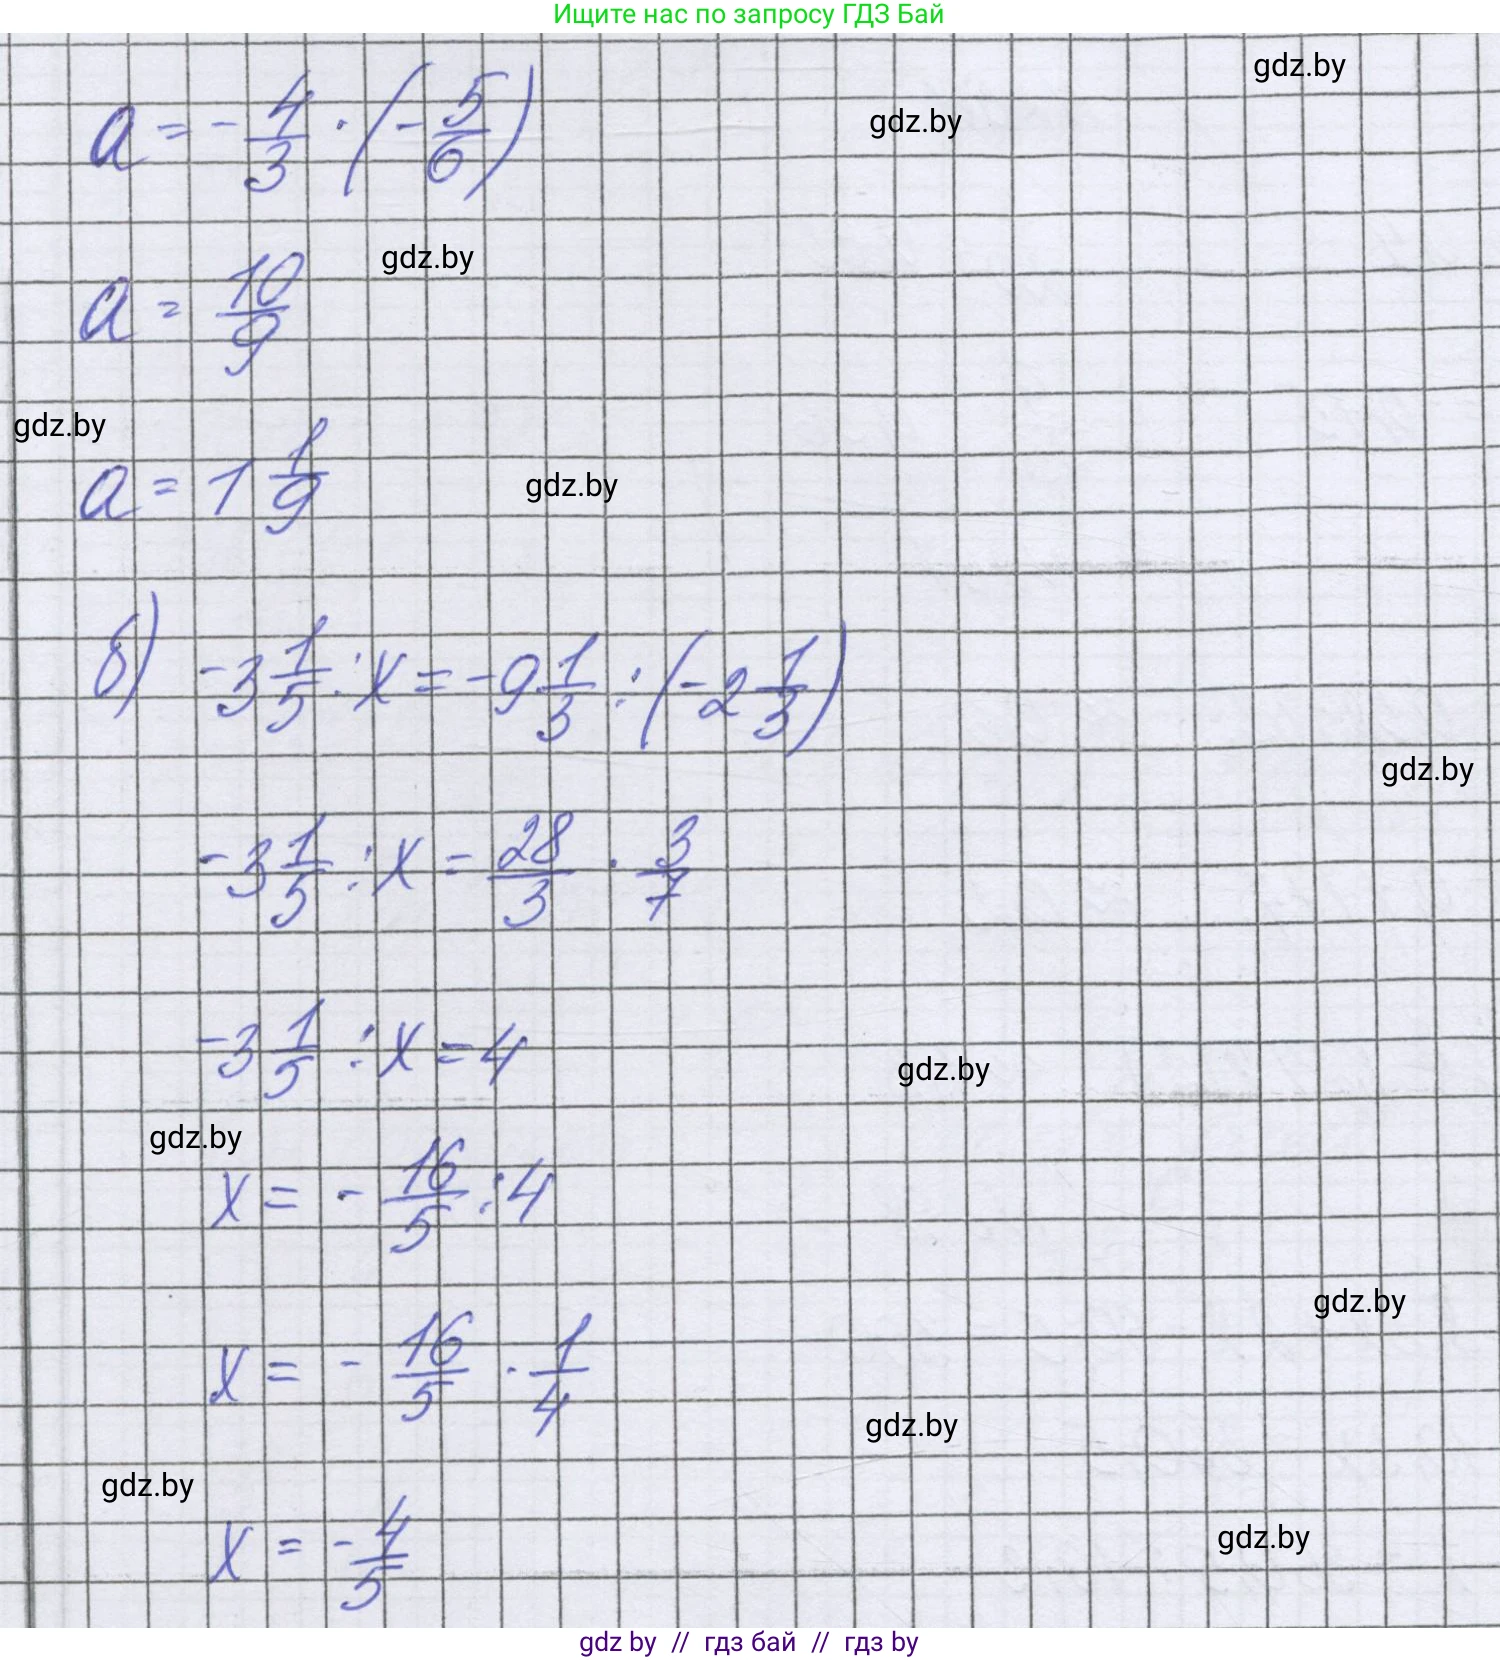 Ищите нас по запросу ГДЗ Бай
gdz.by
gdz.by
a = - 4/3 · (- 5/6)
gdz.by
a = 10/9
gdz.by
a = 1 1/9
gdz.by
б) -3 1/5 : x = -9 1/3 : (-2 1/3)
gdz.by
-3 1/5 : x = 28/3 · 3/7
-3 1/5 : x = 4
gdz.by
gdz.by
x = - 16/5 : 4
gdz.by
x = - 16/5 · 1/4
gdz.by
gdz.by
x = - 4/5
gdz.by
gdz by // гдз бай // гдз by